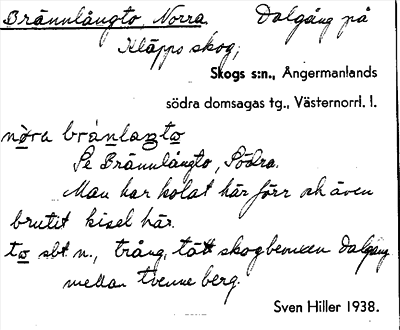 Brännlångto, Norra. Dalgång på
Kläpps skog,
Skogs s:n., Ångermanlands
södra domsagas tg., Västernorrl. l.
nòra bránlaŋto
Se Brännlångto, Södra.
Man har kolat här förr och även
brutit kisel här.
to sbt. n., trång, tätt skogbevuxen dalgång
mellan tvenne berg.
Sven Hiller 1938.